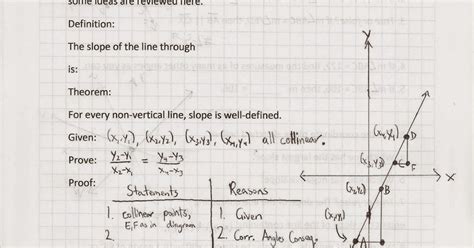 some ideas are reviewed here.
Definition:
The slope of the line through
is:
Theorem:
For every non-vertical line, slope is well-defined.
Given: (x₁,y₁), (x₂,y₂), (x₃,y₃), (x₄,y₄) all collinear.
Prove: y₂-y₁/x₂-x₁ = y₄-y₃/x₄-x₃
Proof:
Statements Reasons
1. collinear points, 1. Given
E,F as in diagram
2. 2. Corr. Angles Conseq.
y
(x₄,y₄) D
(x₃,y₃) C F
x
(x₂,y₂) B
(x₁,y₁)
A